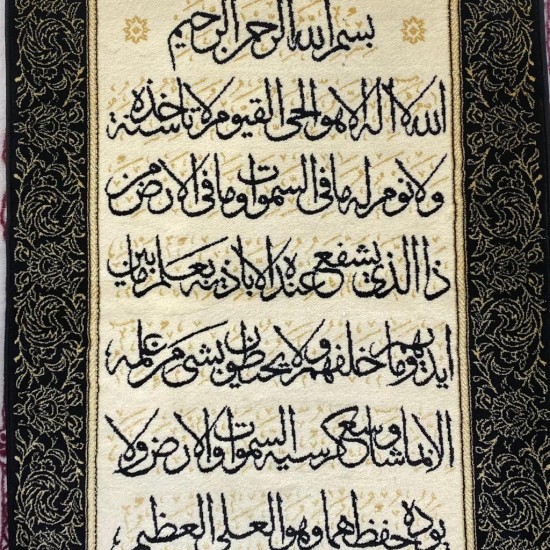 بسم الله الرحمن الرحيم
الله لا اله الا هو الحي القيوم لا تاخذه سنة
ولا نوم له ما في السموات وما في الارض من
ذا الذي يشفع عنده الا باذنه يعلم ما بين
ايديهم وما خلفهم ولا يحيطون بشيء من علمه
الا بما شاء وسع كرسيه السموات والارض ولا
يوده حفظهما وهو العلي العظيم